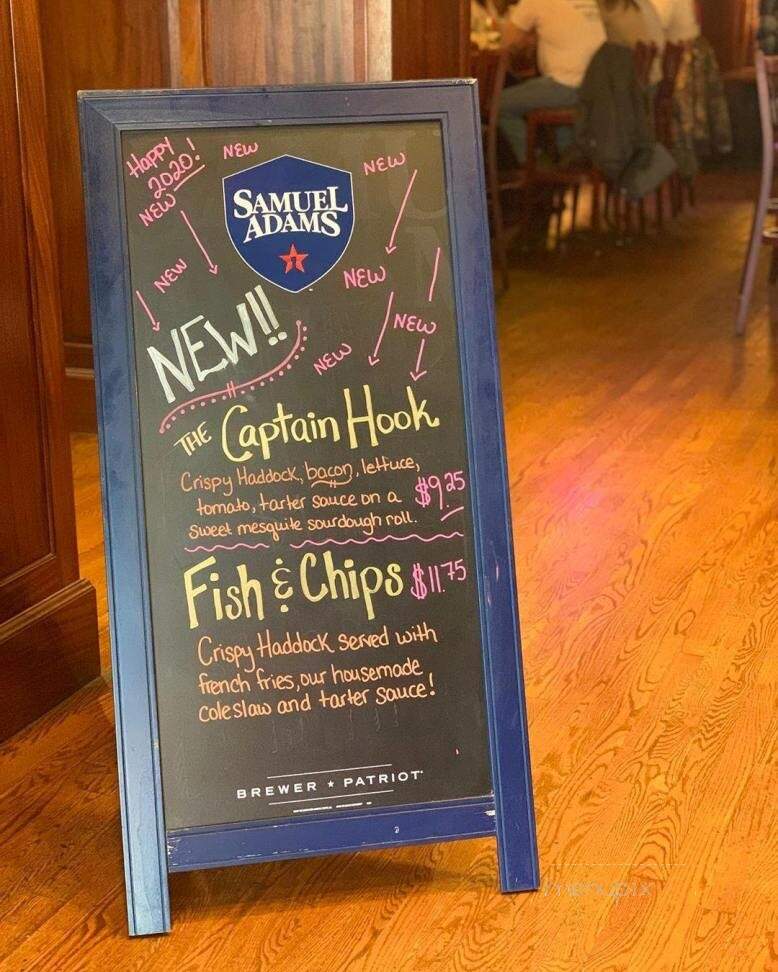 HAPPY
2020!
NEW
NEW
NEW
SAMUEL
ADAMS
NEW
NEW
NEW
NEW
NEW!!
NEW
THE Captain Hook
Crispy Haddock, bacon, lettuce,
tomato, tarter sauce on a
sweet mesquite sourdough roll.
$9.25
Fish & Chips $11.75
Crispy Haddock served with
french fries, our housemade
coleslaw and tarter sauce!
BREWER ★ PATRIOT
menupix